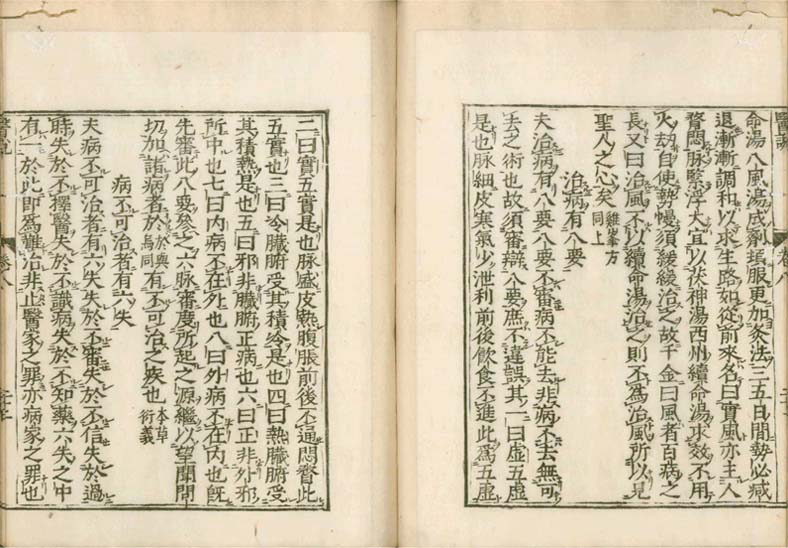 醫説
卷八
命湯八風湯成劑頓服更加灸法三五日間勢必減
退漸漸調和以求生路如從前來名曰實風亦主人
瞀悶脉緊浮大宜以茯神湯西州續命湯求效不用
火劫自使勢慢須緩緩治之故千金曰風者百病之
長又曰治風不以續命湯治之則不爲治風所以見
聖人之心矣雞峯方同上
治病有八要
夫治病有八要八要不審病不能去非病不去無可
去之術也故須審辯八要庶不違誤其一曰虚五虚
是也脉細皮寒氣少泄利前後飮食不進此爲五虚
二曰實五實是也脉盛皮熱腹脹前後不通悶瞀此
五實也三曰冷臟腑受其積冷是也四曰熱臟腑受
其積熱是也五曰邪非臟腑正病也六曰正非外邪
所中也七曰内病不在外也八曰外病不在内也旣
先審此八要參之六脉審度所起之源繼以望聞問
切加諸病者於於與烏同有不可治之疾也本草衍義
病不可治者有六失
夫病不可治者有六失失於不審失於不信失於過
時失於不擇醫失於不識病失於不知藥六失之中
有一於此即爲難治非止醫家之罪亦病家之罪也
醫説
卷八